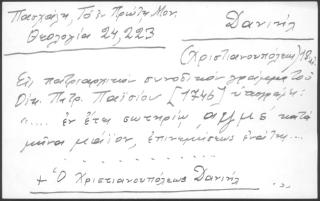 Πασχάλη, Τὸ ἐν Πρώτῃ Μον.
Θεολογία 24,223
Δανιήλ
(Χριστιανουπόλεως) 18
Εἰς πατριαρχικὸν συνοδικὸν γράμμα τοῦ
Οἰκ. Πατρ. Παϊσίου [1746] ὑπογράφει:
"..... ἐν ἔτει σωτηρίῳ αψμς΄ κατὰ
μῆνα μάϊον, ἐπινεμήσεως ἐνάτης...
. . . . . . . . .
+ Ὁ Χριστιανουπόλεως Δανιήλ